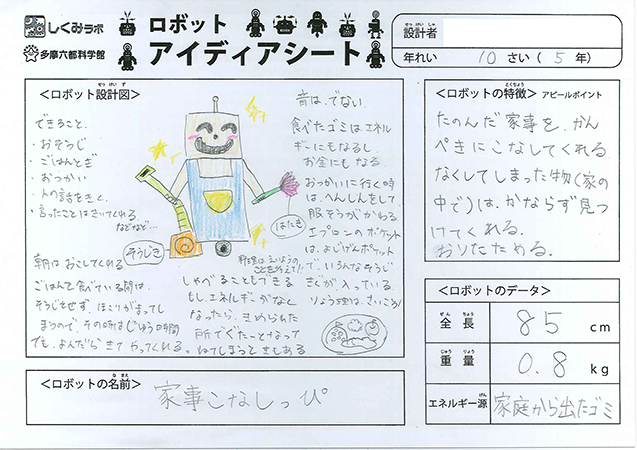 しくみラボ
多摩六都科学館
ロボット
アイディアシート
設計者
年れい 10 さい( 5 年)
<ロボット設計図>
できること、
・おそうじ
・ごはんとぎ
・おつかい
・人の話をきく。
・言ったことはきいてくれる
などなど…
朝はおこしてくれる
ごはんを食べている間は、
そうじをせず、ほこりがまってし
まうので、その時はじゆう時間
でも、よんだらきてやってくれる。
そうじき
はたき
音は、でない、
食べたゴミはエネル
ギーにもなるし
お金にもなる
おつかいに行く時
は、へんしんをして、
服そうがかわる
エプロンのポケット
は、よじげんポケット
で、いろんなそうじ
きぐが入っている。
りょう理は、さいこう!
料理は、えいようの
ことを考えて!!
しゃべることもできる
もし、エネルギーがなく
なったら、きめられた
所でぐた〜となって
ねてしまうときもある
<ロボットの名前>
家事こなしっぴ
<ロボットの特徴> アピールポイント
たのんだ家事を、かん
ぺきにこなしてくれる
なくしてしまった物(家の
中で)は、かならず見つ
けてくれる。
おりたためる。
<ロボットのデータ>
全長 85 cm
重量 0.8 kg
エネルギー源 家庭から出たゴミ